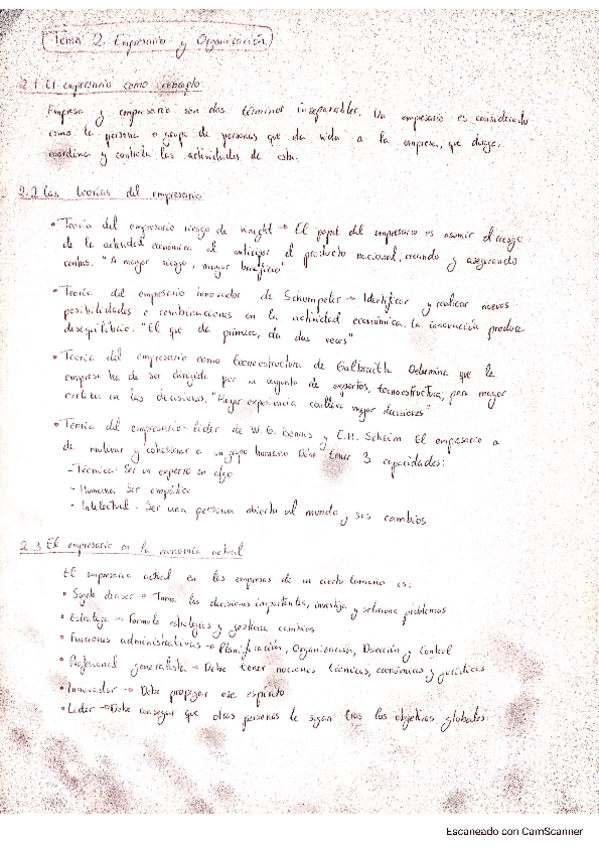 Tema 2. Empresario y Organización
2.1 El empresario como concepto
Empresa y empresario son dos términos inseparables. Un empresario es considerado
como la persona o grupo de personas que da vida a la empresa, que dirige,
coordina y controla las actividades de esta.
2.2 Las teorías del empresario
• Teoría del empresario riesgo de Knight → El papel del empresario es asumir el riesgo
de la actividad económica al anticipar el producto nacional, creando y asegurando
rentas. "A mayor riesgo, mayor beneficio"
• Teoría del empresario innovador de Schumpeter → Identificar y realizar nuevas
posibilidades o combinaciones en la actividad económica. La innovación produce
desequilibrio. "El que da primero, da dos veces"
• Teoría del empresario como tecnoestructura de Galbraith Determina que la
empresa ha de ser dirigida por un conjunto de expertos, tecnoestructura, para mayor
en las decisiones. "Mayor experiencia conlleva mejor decisiones"
• Teoría del empresario-líder de W. G. Bennis y E.H. Scheim El empresario a
de motivar y cohesionar a un grupo humano Debe tener 3 capacidades:
- Técnica: Ser un experto en algo
- Humana Ser empático
- Intelectual - Ser una persona abierta al mundo y sus cambios
2.3 El empresario en la economía actual
El empresario actual en las empresas de un cierto tamaño es:
• Sujeto decisor → Toma las decisiones importantes, investiga y soluciona problemas
• Estratega → Formula estrategias y gestiona cambios
• Funciones administrativas → Planificación, Organización, Dirección y Control
• Profesional generalista → Debe tener nociones técnicas, económicas y jurídicas
• Innovador → Debe propagar ese espíritu
• Líder → Debe conseguir que otras personas le sigan tras los objetivos globales
Escaneado con CamScanner